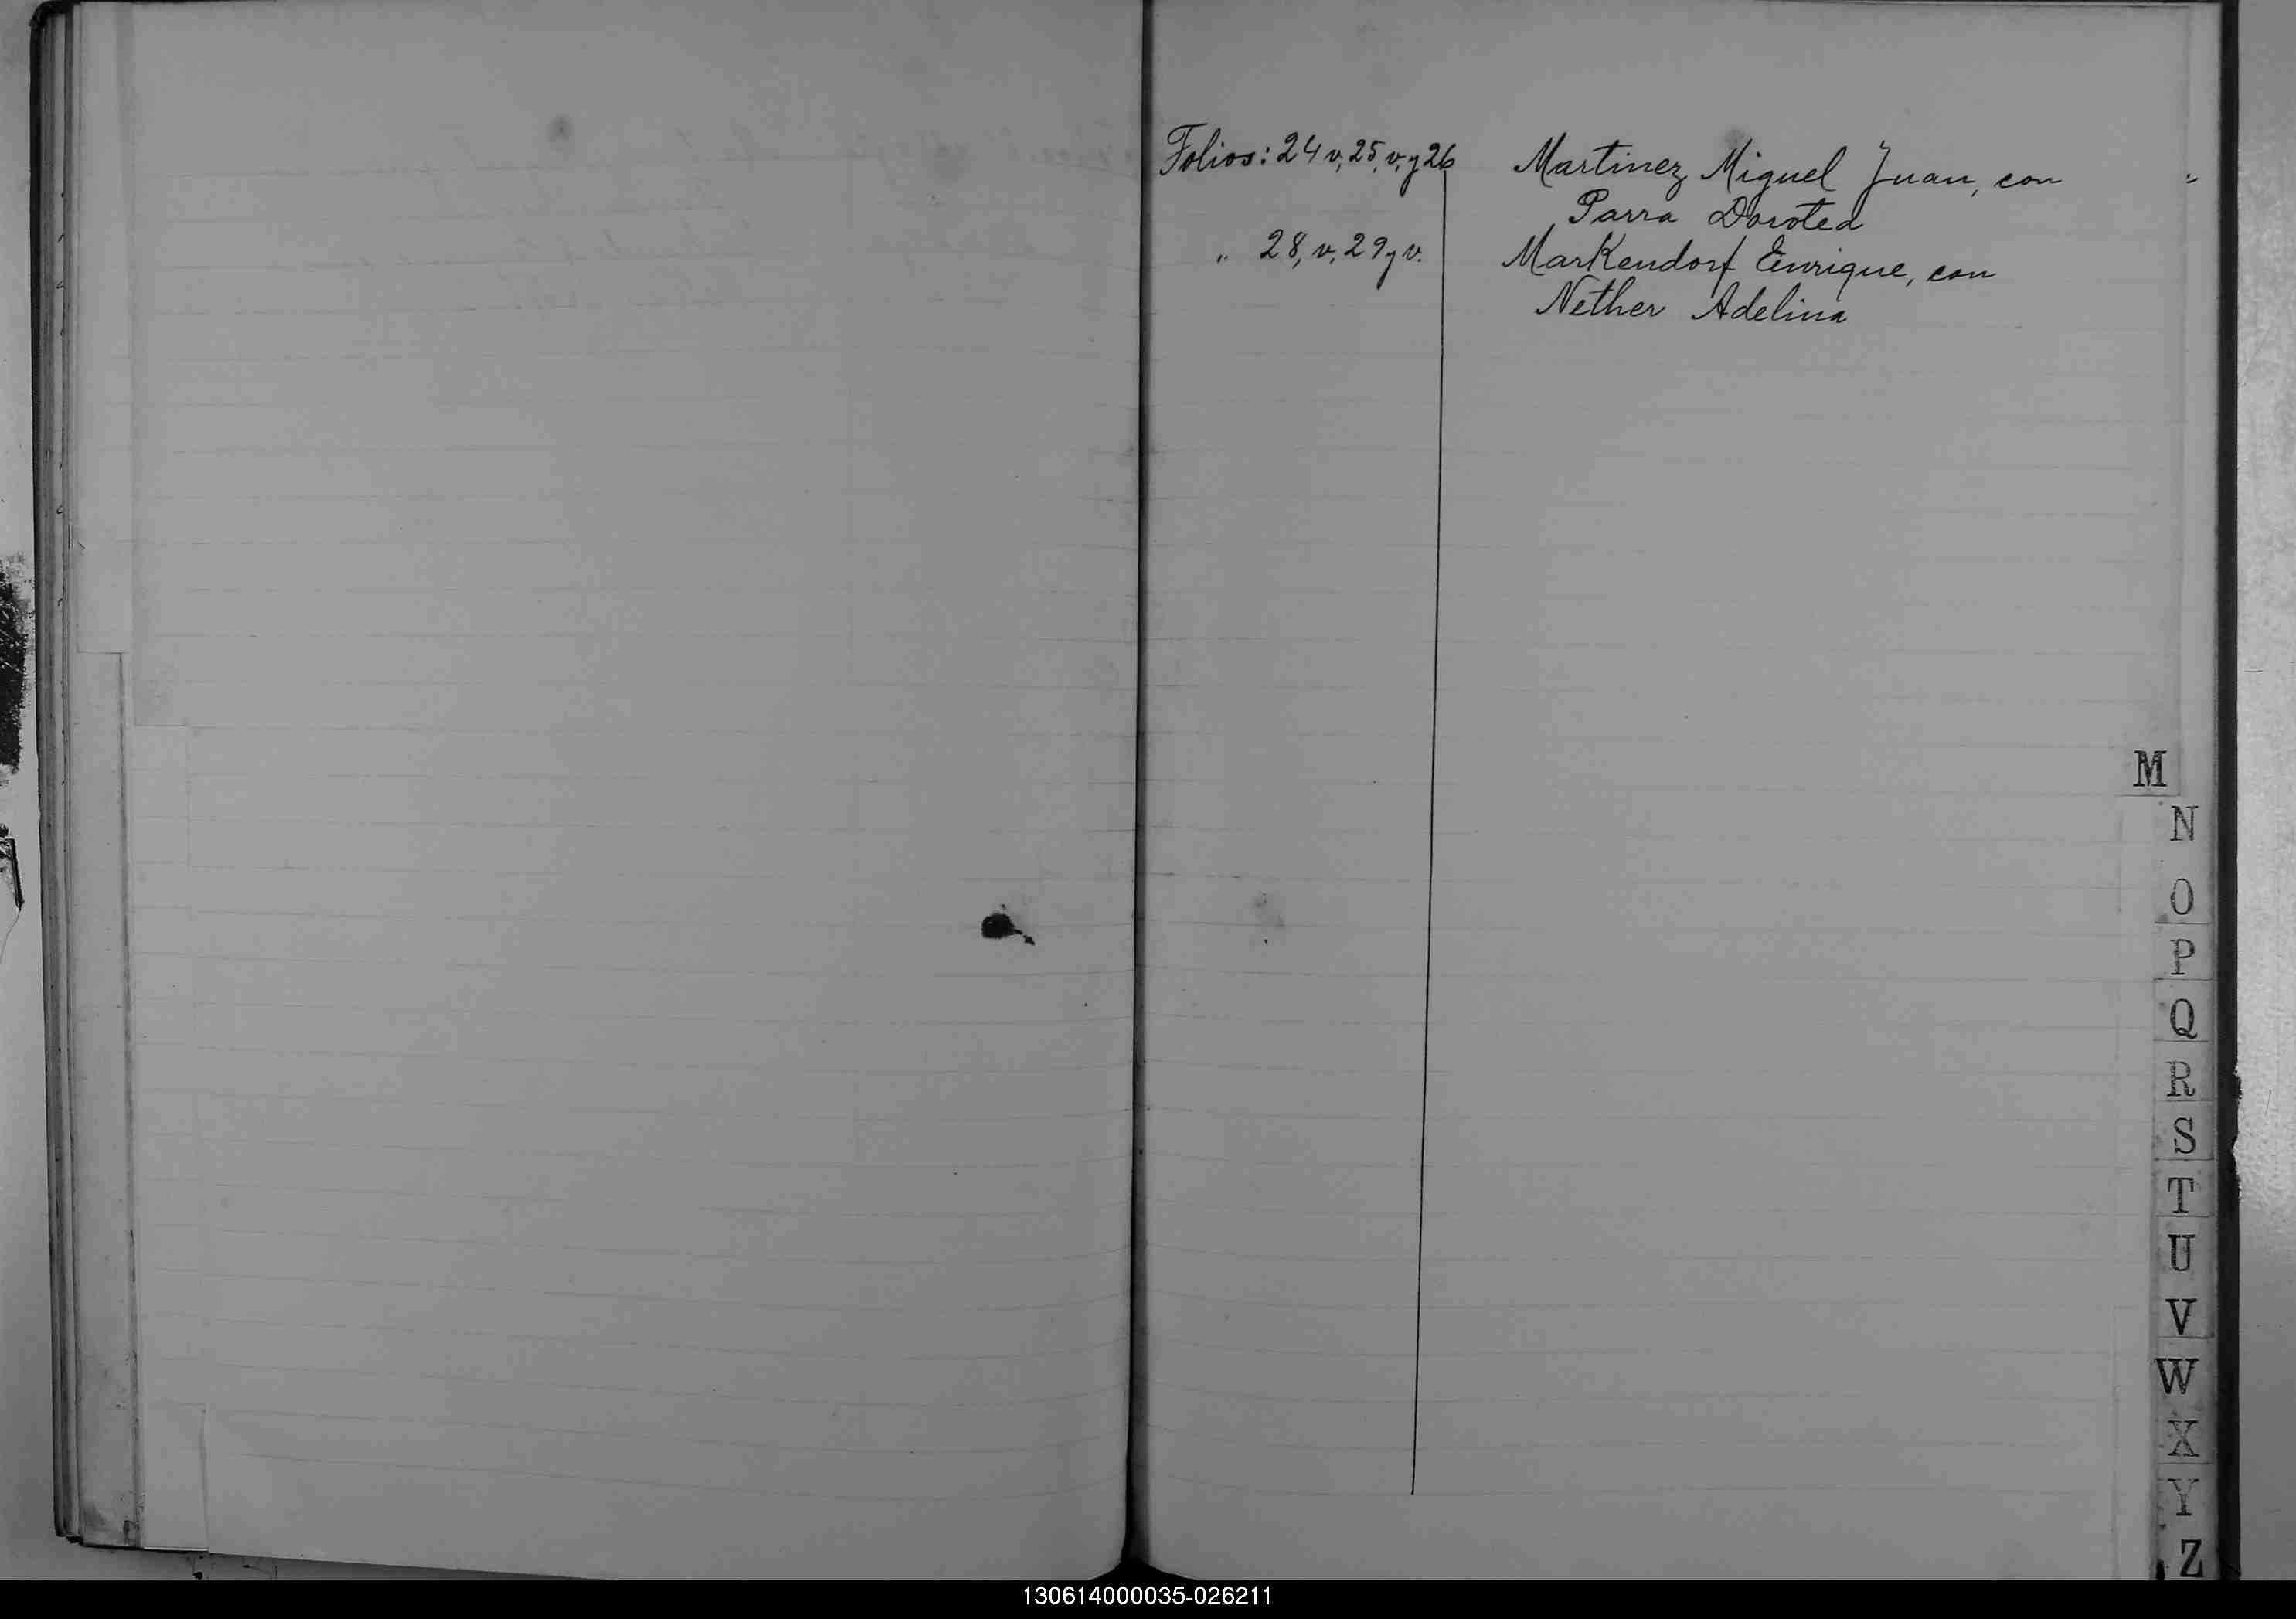 Folios: 24 v, 25, v, y 26 Martinez Miguel Juan, con
Parra Dorotea
„ 28, v, 29 y v. Markendorf Enrique, con
Nether Adelina
M
N
O
P
Q
R
S
T
U
V
W
X
Y
Z
130614000035-026211